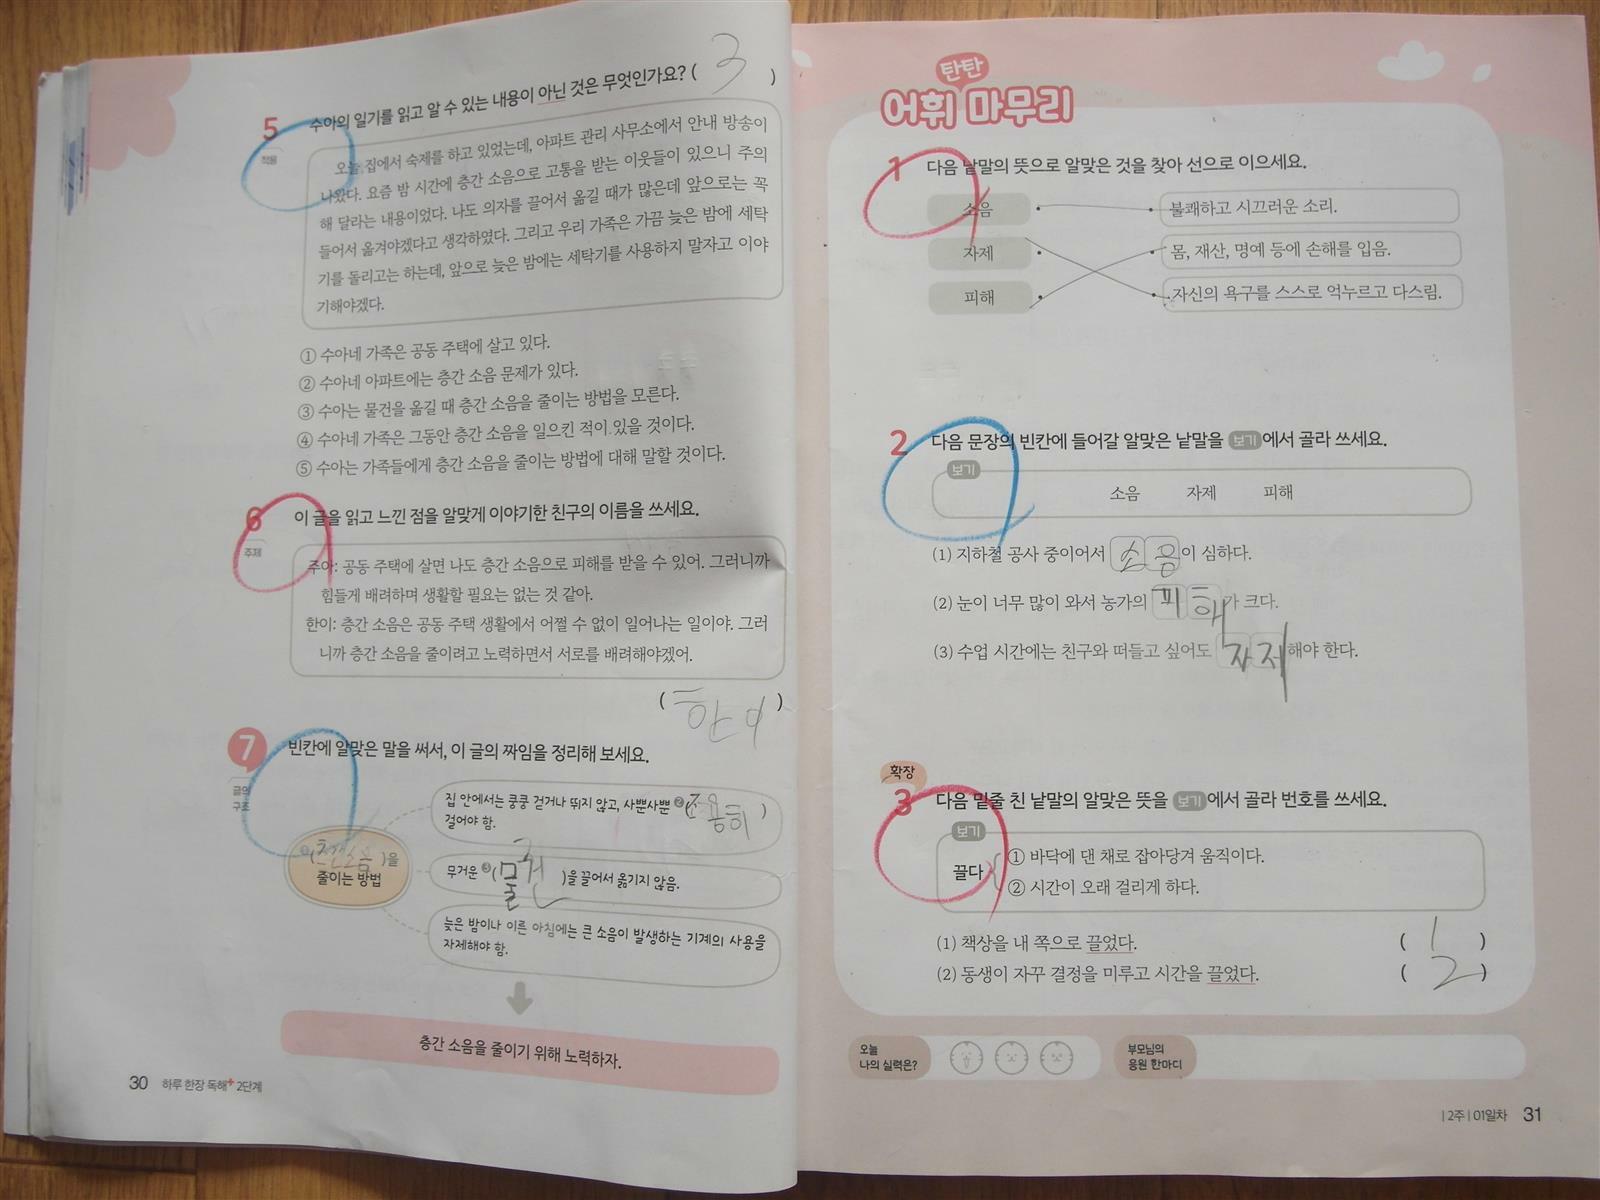 5 수아의 일기를 읽고 알 수 있는 내용이 아닌 것은 무엇인가요? ( 3 )
적용
오늘 집에서 숙제를 하고 있었는데, 아파트 관리 사무소에서 안내 방송이
나왔다. 요즘 밤 시간에 층간 소음으로 고통을 받는 이웃들이 있으니 주의
해 달라는 내용이었다. 나도 의자를 끌어서 옮길 때가 많은데 앞으로는 꼭
들어서 옮겨야겠다고 생각하였다. 그리고 우리 가족은 가끔 늦은 밤에 세탁
기를 돌리고는 하는데, 앞으로 늦은 밤에는 세탁기를 사용하지 말자고 이야
기해야겠다.
① 수아네 가족은 공동 주택에 살고 있다.
② 수아네 아파트에는 층간 소음 문제가 있다.
③ 수아는 물건을 옮길 때 층간 소음을 줄이는 방법을 모른다.
④ 수아네 가족은 그동안 층간 소음을 일으킨 적이 있을 것이다.
⑤ 수아는 가족들에게 층간 소음을 줄이는 방법에 대해 말할 것이다.
6 이 글을 읽고 느낀 점을 알맞게 이야기한 친구의 이름을 쓰세요.
주제
주아: 공동 주택에 살면 나도 층간 소음으로 피해를 받을 수 있어. 그러니까
힘들게 배려하며 생활할 필요는 없는 것 같아.
한이: 층간 소음은 공동 주택 생활에서 어쩔 수 없이 일어나는 일이야. 그러
니까 층간 소음을 줄이려고 노력하면서 서로를 배려해야겠어.
( 한이 )
7 빈칸에 알맞은 말을 써서, 이 글의 짜임을 정리해 보세요.
글의
구조
집 안에서는 쿵쿵 걷거나 뛰지 않고, 사뿐사뿐 ❷( 조용히 )
걸어야 함.
❶( 층간소음 )을
줄이는 방법
무거운 ❸( 물건 )을 끌어서 옮기지 않음.
늦은 밤이나 이른 아침에는 큰 소음이 발생하는 기계의 사용을
자제해야 함.
층간 소음을 줄이기 위해 노력하자.
30 하루 한장 독해+ 2단계
탄탄
어휘 마무리
1 다음 낱말의 뜻으로 알맞은 것을 찾아 선으로 이으세요.
소음 • • 불쾌하고 시끄러운 소리.
자제 • • 몸, 재산, 명예 등에 손해를 입음.
피해 • • 자신의 욕구를 스스로 억누르고 다스림.
2 다음 문장의 빈칸에 들어갈 알맞은 낱말을 보기 에서 골라 쓰세요.
보기
소음 자제 피해
(1) 지하철 공사 중이어서 소음이 심하다.
(2) 눈이 너무 많이 와서 농가의 피해가 크다.
(3) 수업 시간에는 친구와 떠들고 싶어도 자제해야 한다.
확장
3 다음 밑줄 친 낱말의 알맞은 뜻을 보기 에서 골라 번호를 쓰세요.
보기
끌다 ① 바닥에 댄 채로 잡아당겨 움직이다.
② 시간이 오래 걸리게 하다.
(1) 책상을 내 쪽으로 끌었다. ( 1 )
(2) 동생이 자꾸 결정을 미루고 시간을 끌었다. ( 2 )
오늘
나의 실력은?
부모님의
응원 한마디
| 2주 | 01일차 31